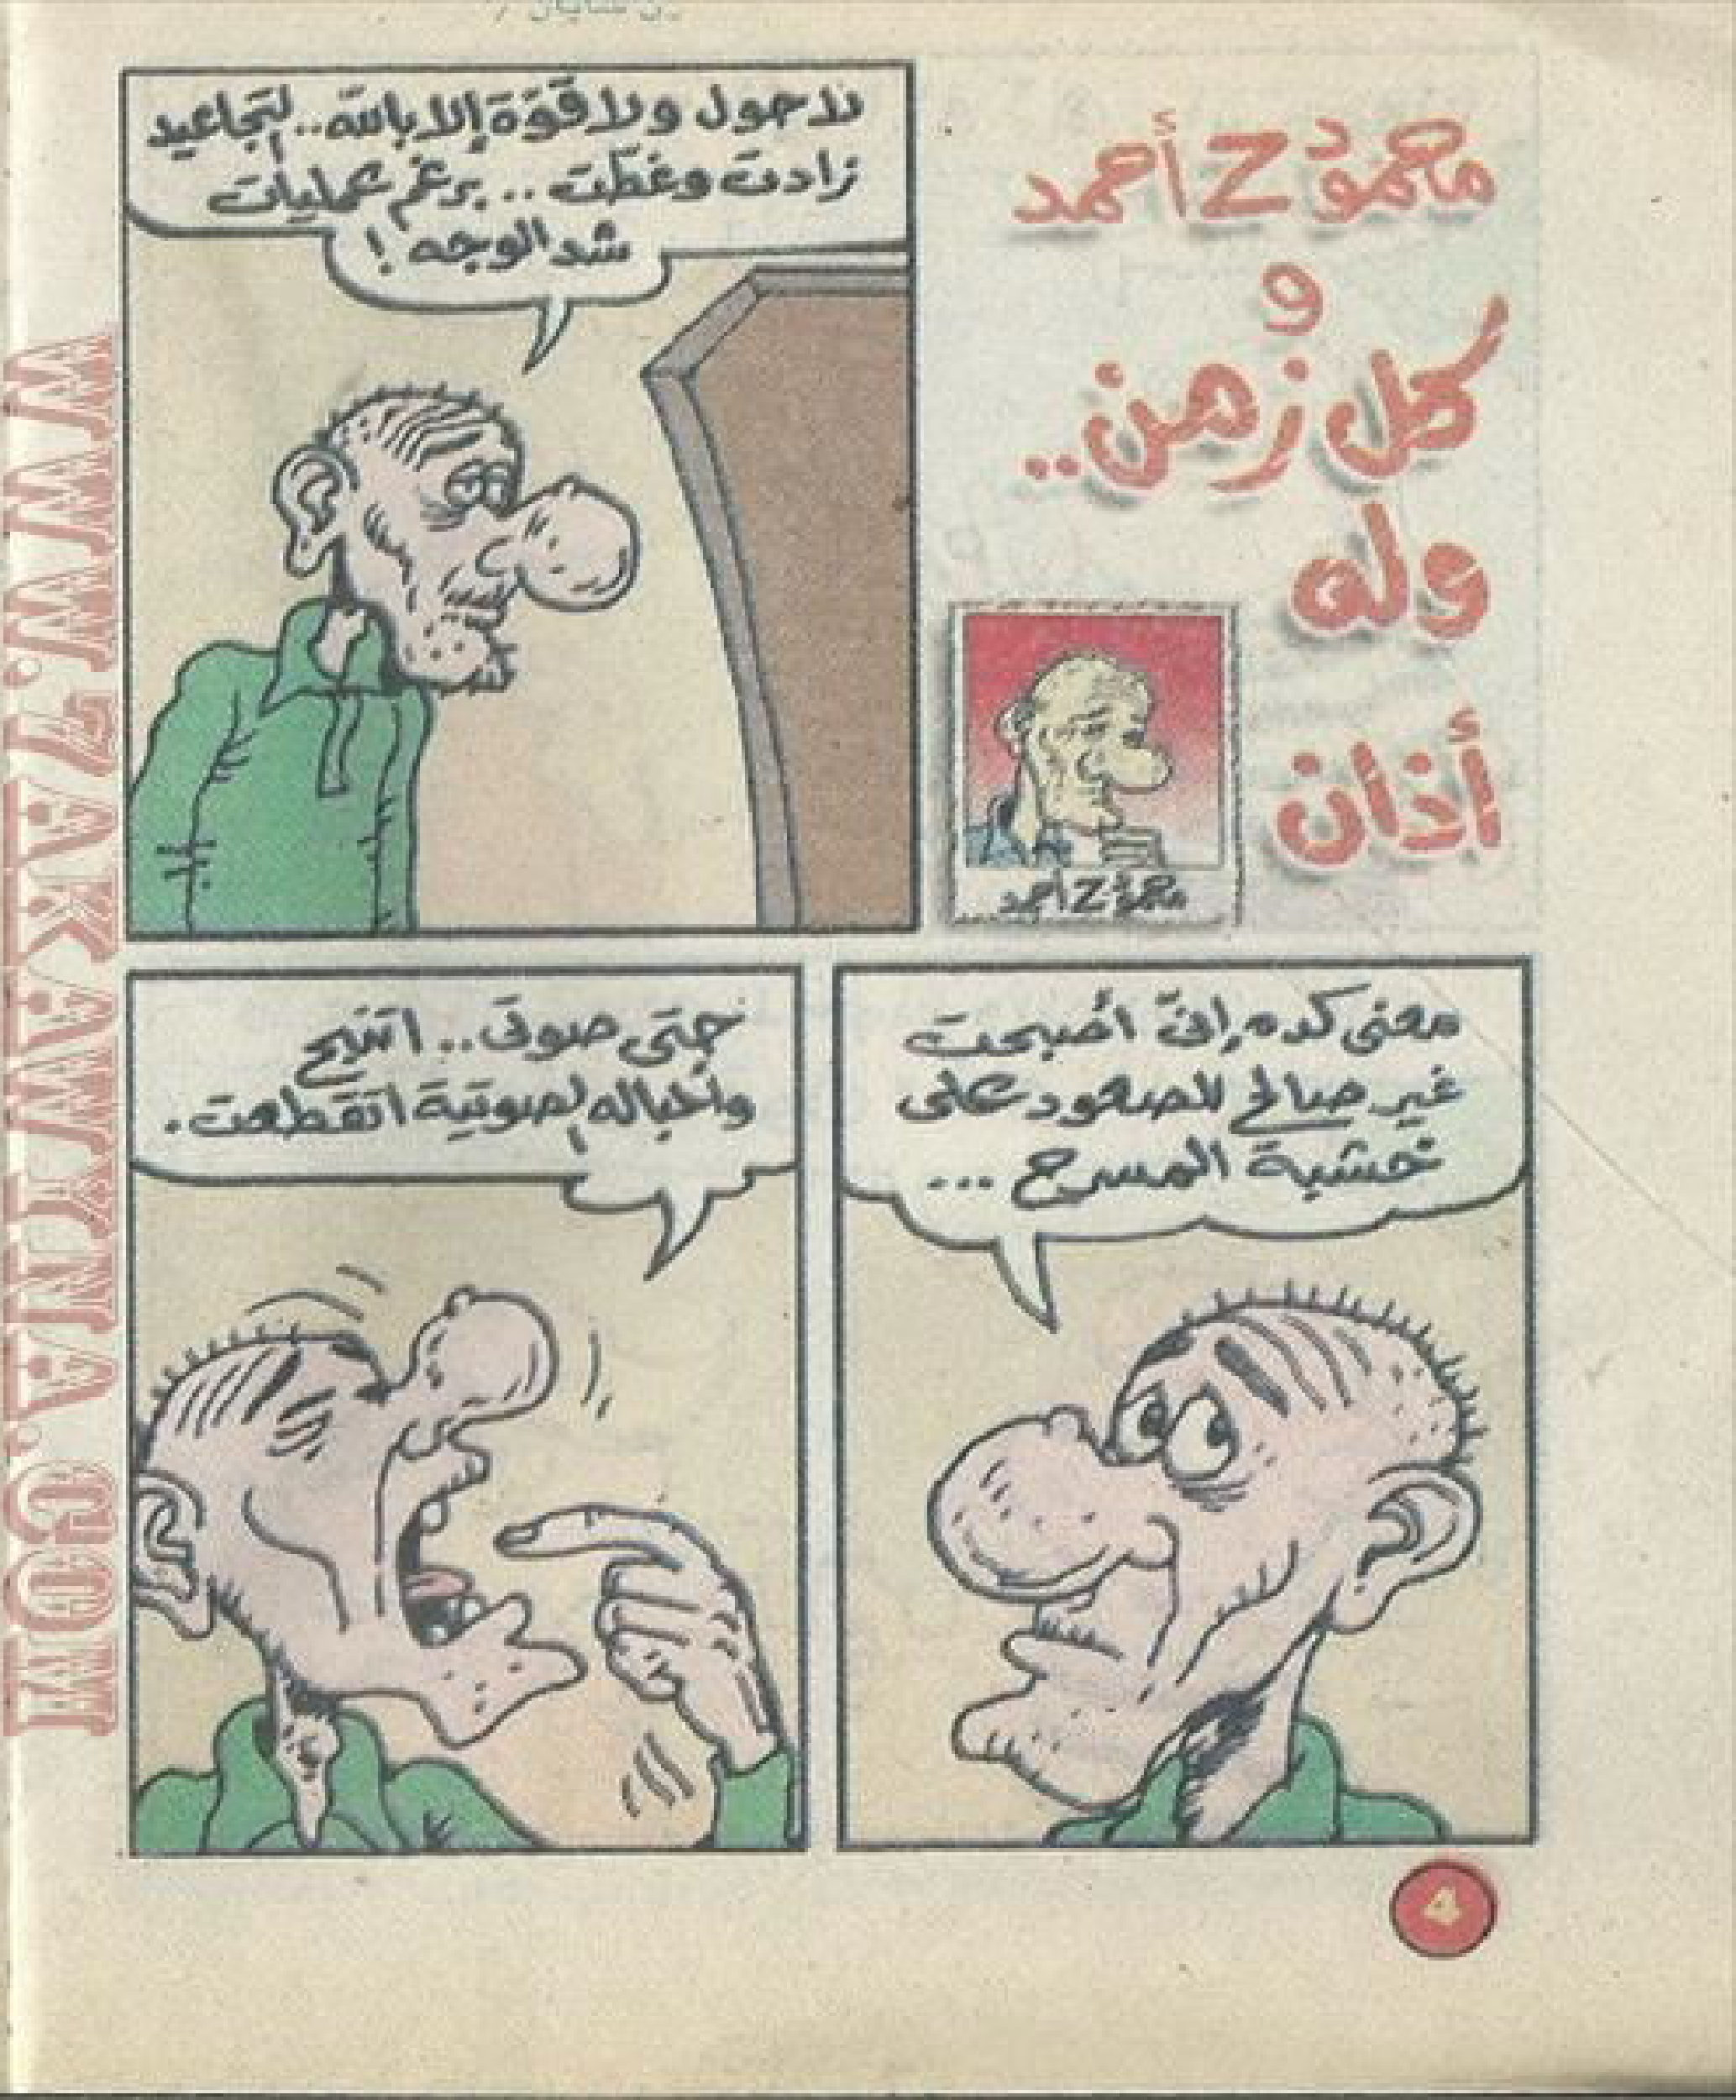 محمود Z أحمد
و
كل زمن..
وله
أذان
محمود Z أحمد
لا حول ولا قوة إلا بالله.. التجاعيد
زادت وغطت .. برغم عمليات
شد الوجه !
معنى كده إنى أصبحت
غير صالح للصعود على
خشبة المسرح ...
حتى صوتى.. اتنبح
وأحباله الصوتية اتقطعت.
4
WWW.7AKAWATINA.COM